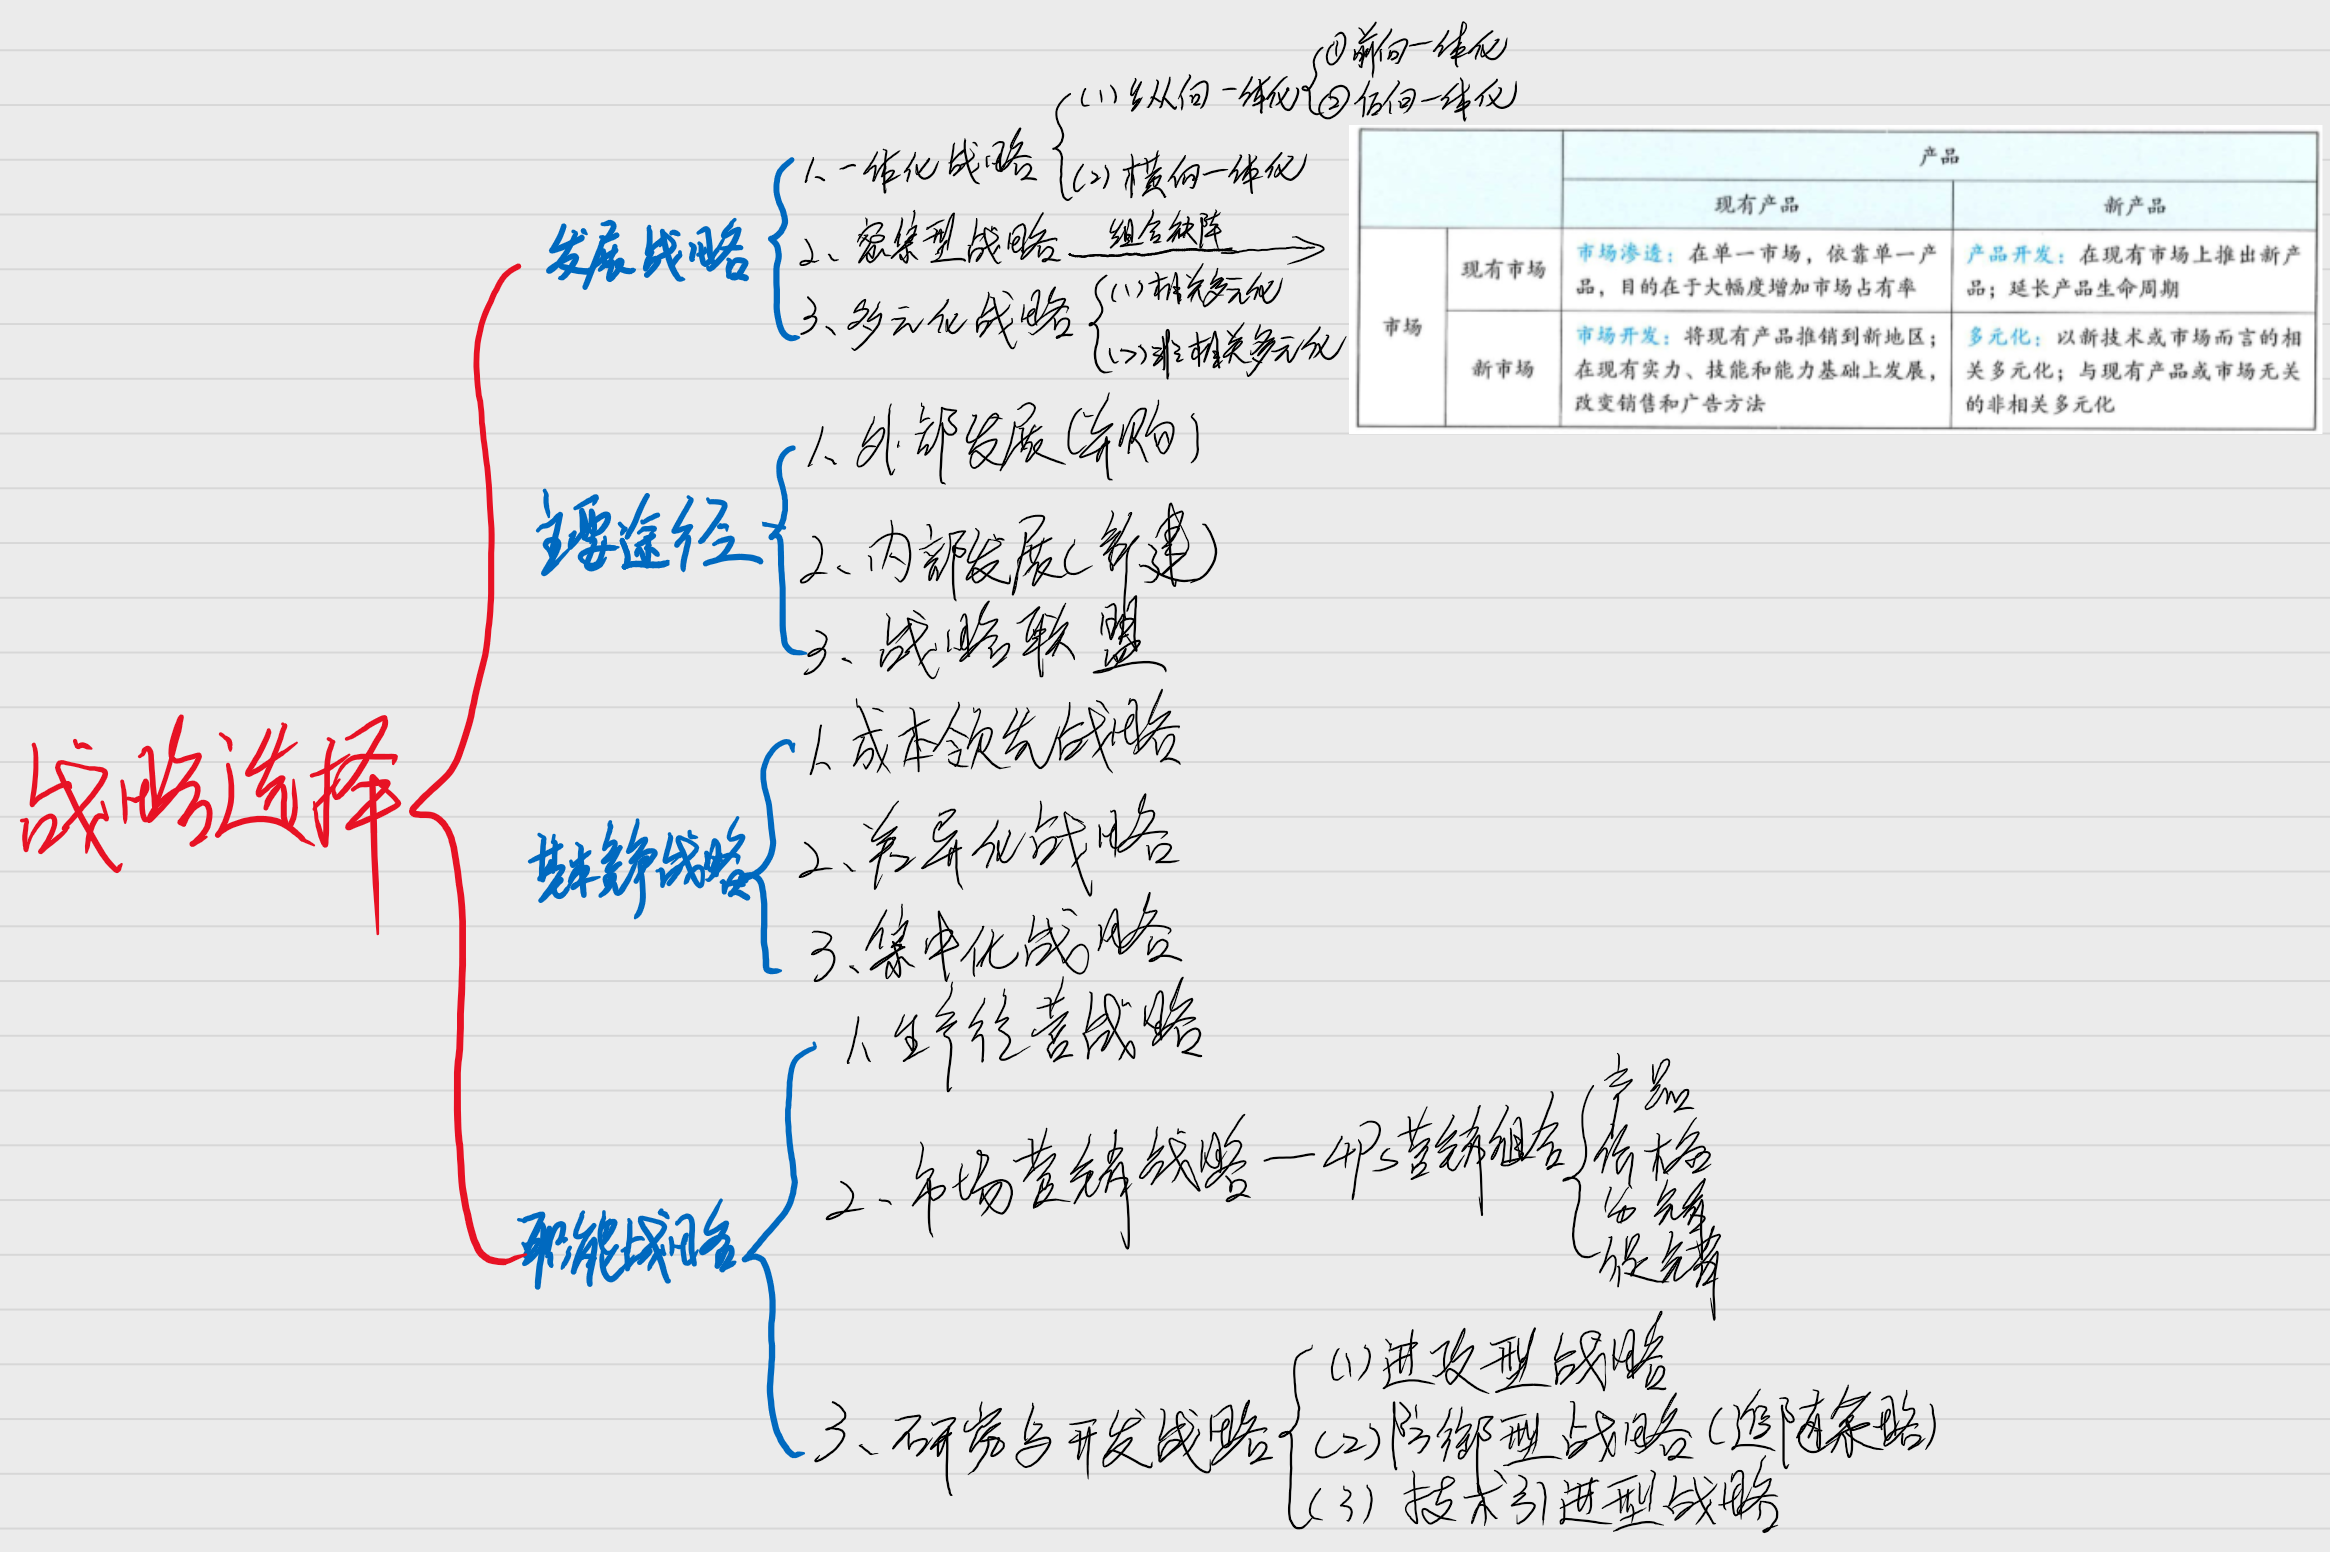 战略选择
发展战略
1、一体化战略
(1) 纵向一体化
①前向一体化
②后向一体化
(2) 横向一体化
2、密集型战略
组合矩阵
产品
现有产品
新产品
市场
现有市场
市场渗透：在单一市场，依靠单一产
品，目的在于大幅度增加市场占有率
产品开发：在现有市场上推出新产
品；延长产品生命周期
新市场
市场开发：将现有产品推销到新地区；
在现有实力、技能和能力基础上发展，
改变销售和广告方法
多元化：以新技术或市场而言的相
关多元化；与现有产品或市场无关
的非相关多元化
3、多元化战略
(1) 相关多元化
(2) 非相关多元化
主要途径
1、外部发展(并购)
2、内部发展(新建)
3、战略联盟
基本竞争战略
1、成本领先战略
2、差异化战略
3、集中化战略
职能战略
1、生产经营战略
2、市场营销战略—4Ps营销组合
产品
价格
分销
促销
3、研究与开发战略
(1) 进攻型战略
(2) 防御型战略(追随策略)
(3) 技术引进型战略